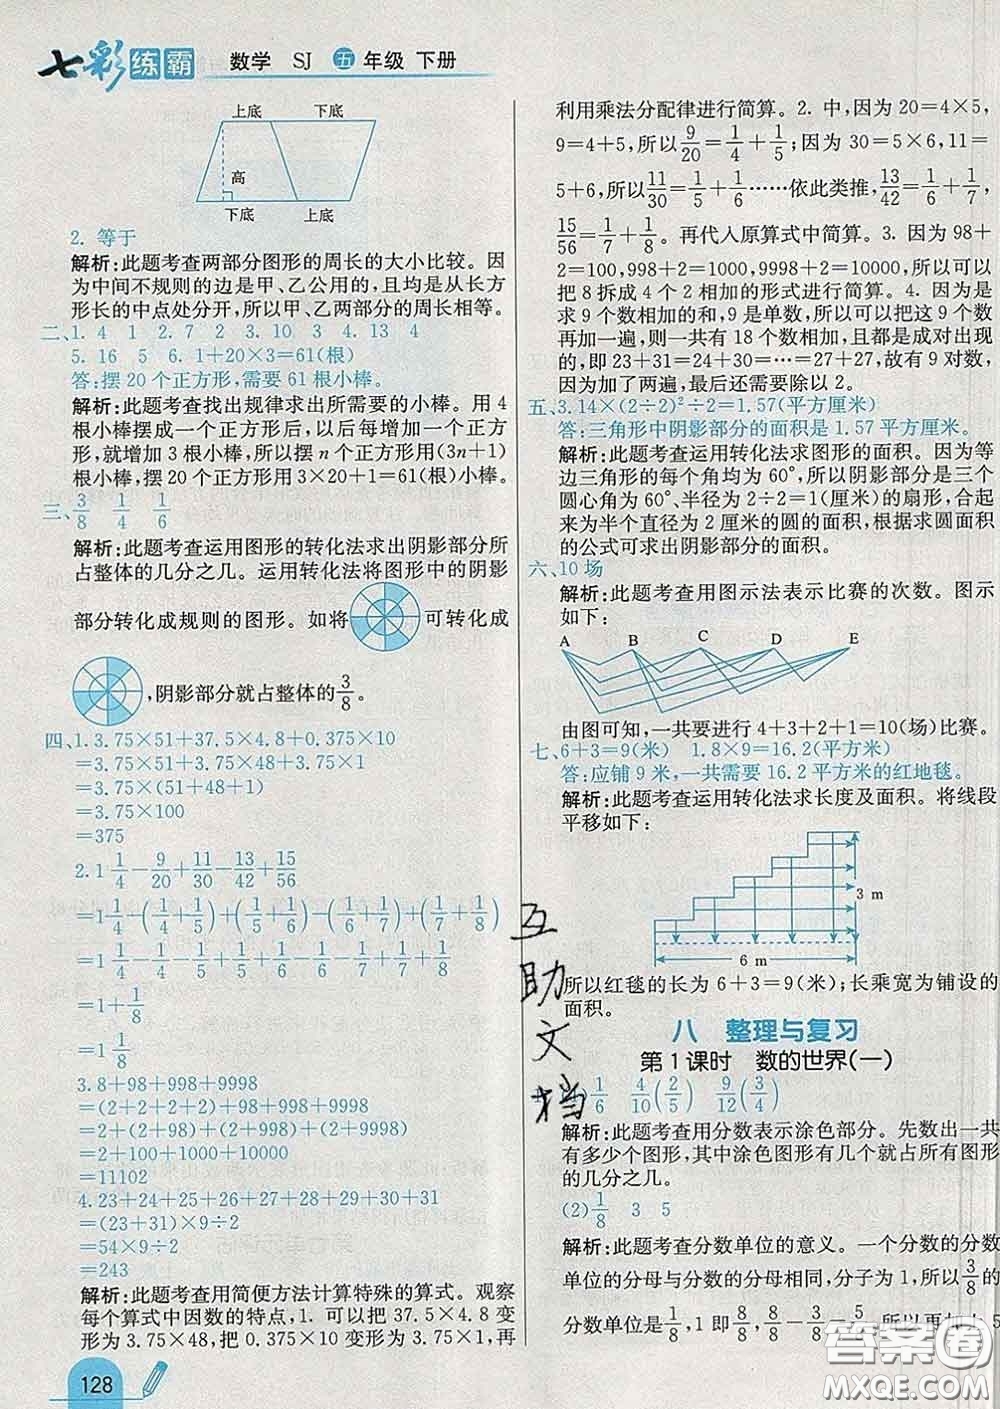 七彩练霸 数学 SJ 五年级 下册
上底 下底
高
下底 上底
2. 等于
解析:此题考查两部分图形的周长的大小比较。因
为中间不规则的边是甲、乙公用的,且均是从长方
形长的中点处分开,所以甲、乙两部分的周长相等。
二、1. 4 1 2. 7 2 3. 10 3 4. 13 4
5. 16 5 6. 1+20×3=61(根)
答:摆20个正方形,需要61根小棒。
解析:此题考查找出规律求出所需要的小棒。用4
根小棒摆成一个正方形后,以后每增加一个正方
形,就增加3根小棒,所以摆n个正方形用(3n+1)
根小棒,摆20个正方形用3×20+1=61(根)小棒。
三、3/8 1/4 1/6
解析:此题考查运用图形的转化法求出阴影部分所
占整体的几分之几。运用转化法将图形中的阴影
部分转化成规则的图形。如将 可转化成
,阴影部分就占整体的3/8。
四、1. 3.75×51+37.5×4.8+0.375×10
=3.75×51+3.75×48+3.75×1
=3.75×(51+48+1)
=3.75×100
=375
2. 1 1/4-9/20+11/30-13/42+15/56
=1 1/4-(1/4+1/5)+(1/5+1/6)-(1/6+1/7)+(1/7+1/8)
=1 1/4-1/4-1/5+1/5+1/6-1/6-1/7+1/7+1/8
=1+1/8
=1 1/8
3. 8+98+998+9998
=(2+2+2+2)+98+998+9998
=2+(2+98)+(2+998)+(2+9998)
=2+100+1000+10000
=11102
4. 23+24+25+26+27+28+29+30+31
=(23+31)×9÷2
=54×9÷2
=243
解析:此题考查用简便方法计算特殊的算式。观察
每个算式中因数的特点,1. 可以把37.5×4.8变
形为3.75×48,把0.375×10变形为3.75×1,再
128
利用乘法分配律进行简算。2. 中,因为20=4×5,
9=4+5,所以9/20=1/4+1/5;因为30=5×6,11=
5+6,所以11/30=1/5+1/6……依此类推,13/42=1/6+1/7,
15/56=1/7+1/8。再代入原算式中简算。3. 因为98+
2=100,998+2=1000,9998+2=10000,所以可以
把8拆成4个2相加的形式进行简算。4. 因为是
求9个数相加的和,9是单数,所以可以把这9个数
再加一遍,则共有18个数相加,且都是成对出现
的,即23+31=24+30=…=27+27,故有9对数,
因加了两遍,最后还需要除以2。
五、3.14×(2÷2)²÷2=1.57(平方厘米)
答:三角形中阴影部分的面积是1.57平方厘米。
解析:此题考查运用转化法求图形的面积。因为等
边三角形的每个角均为60°,所以阴影部分是三个
圆心角为60°、半径为2÷2=1(厘米)的扇形,合起
来为半个直径为2厘米的圆的面积,根据求圆面积
的公式可求出阴影部分的面积。
六、10场
解析:此题考查用图示法表示比赛的次数。图示
如下:
A B C D E
由图可知,一共要进行4+3+2+1=10(场)比赛。
七、6+3=9(米) 1.8×9=16.2(平方米)
答:应铺9米,一共需要16.2平方米的红地毯。
解析:此题考查运用转化法求长度及面积。将线段
平移如下:
3 m
6 m
所以红毯的长为6+3=9(米);长乘宽为铺设的
面积。
八 整理与复习
第1课时 数的世界(一)
1/6 4/10(2/5) 9/12(3/4)
解析:此题考查用分数表示涂色部分。先数出一共
有多少个图形,其中涂色图形有几个就占所有图形
的几分之几。
(2)1/8 3 5
解析:此题考查分数单位的意义。一个分数的分数
单位的分母与分数的分母相同,分子为1,所以3/8的
分数单位为1/8,1即8/8,
互助文档
答案圈
MXQE.COM